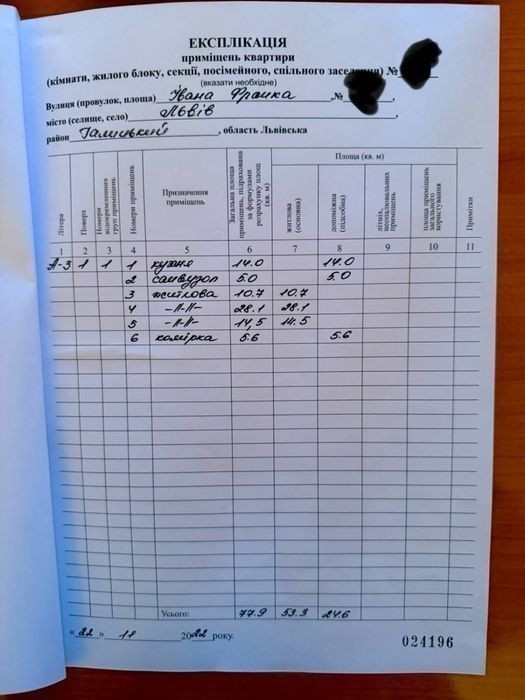 ЕКСПЛІКАЦІЯ
приміщень квартири
(кімнати, жилого блоку, секції, посімейного, спільного заселення) №
(вказати необхідне)
Вулиця (провулок, площа) Івана Франка, №
місто (селище, село) Львів,
район Галицький, область Львівська
Літера
Поверх
Номери відокремленних груп приміщень
Номери приміщень
Призначення приміщень
Загальна площа приміщень, підрахована за формулами розрахунку площ (кв. м)
Площа (кв. м)
житлова (основна)
допоміжна (підсобна)
літніх, неопалювальних приміщень
площа приміщень загального користування
Примітки
1 2 3 4 5 6 7 8 9 10 11
А-3 1 1 1 кухня 14.0 14.0
2 санвузол 5.0 5.0
3 житлова 10.7 10.7
4 -//-//- 28.1 28.1
5 -//-//- 14,5 14.5
6 комірка 5.6 5.6
Усього: 77.9 53.3 24.6
"22" 11 2022 року.
024196